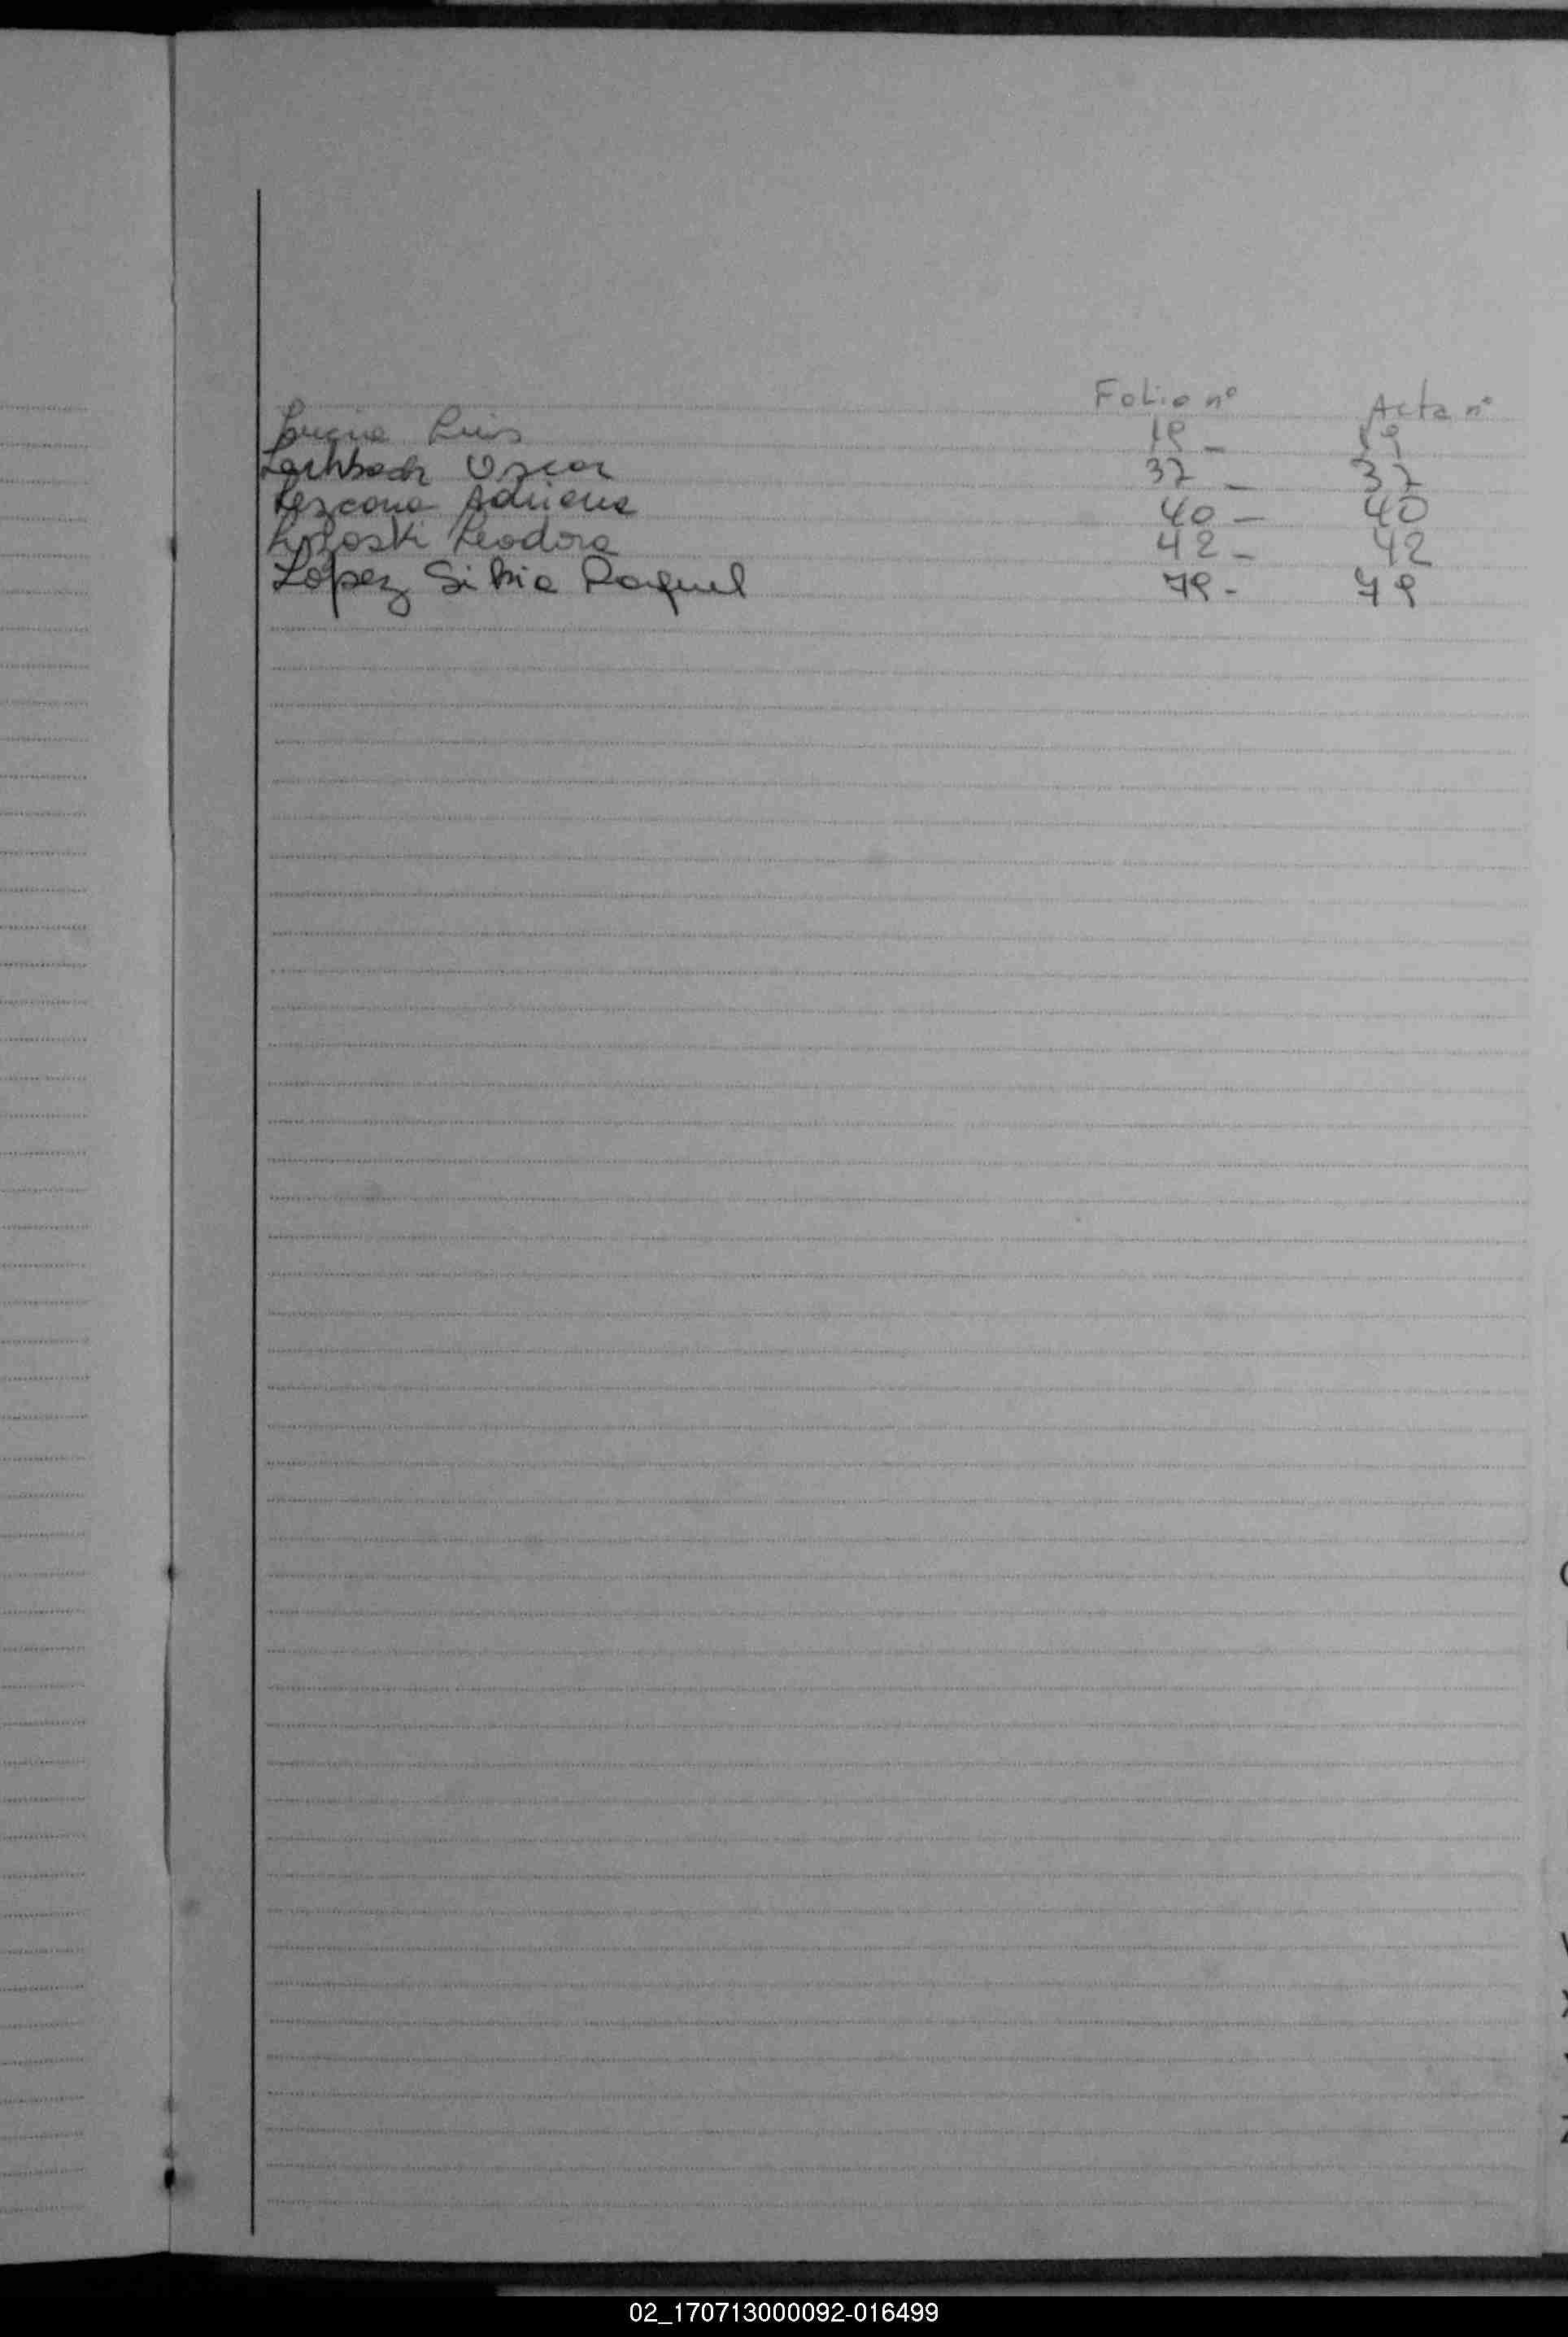 Folio nº Acta nº
Luis 19 - 19
Oscar 37 - 37
Lezcano Adriana 40 - 40
42 - 42
Lopez Silvia Raquel 79 - 79
02_170713000092-016499